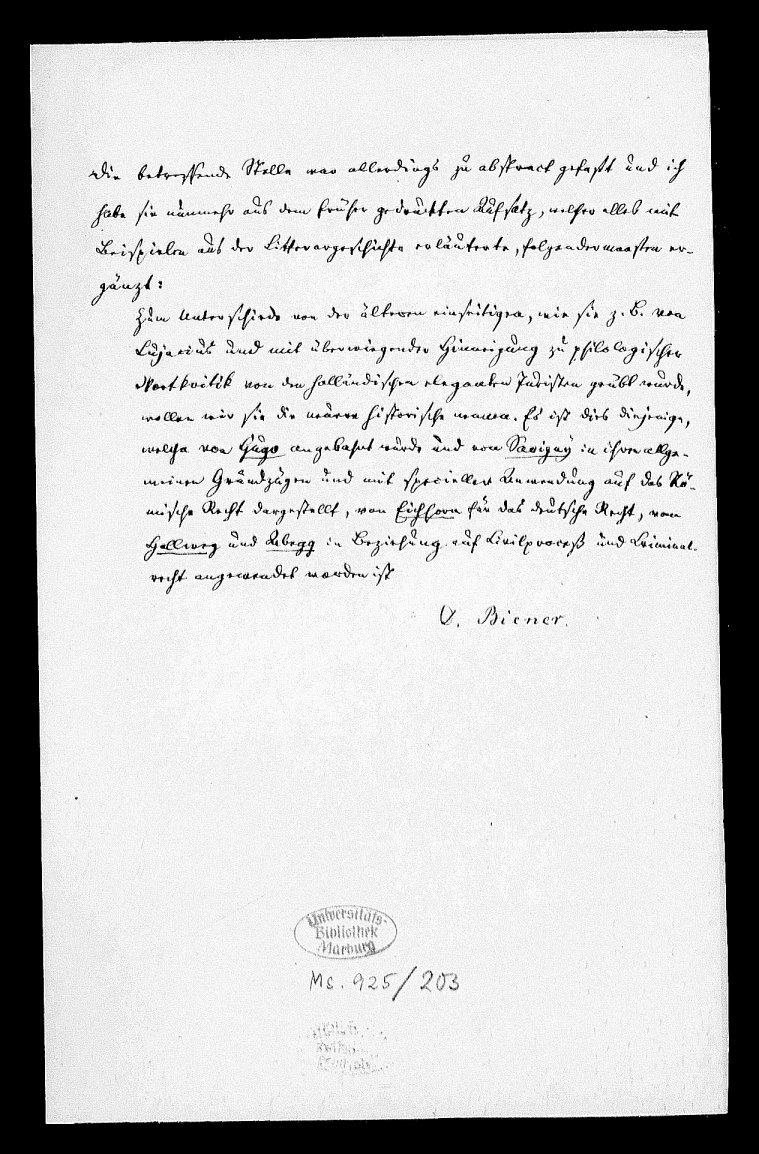 Die betreffende Stelle war allerdings zu abstract gefaßt und ich
habe sie nunmehr aus dem früher gedruckten Aufsatz, welcher alles mit
Beispielen aus der Litterargeschichte erläuterte, folgendermaaßen er-
gänzt:
Zum Unterschiede von der älteren einseitigen, wie sie z. B. von
Cujacius und mit überwiegender Hinneigung zu philologischer
Wortkritik von den holländischen eleganten Juristen geübt wurde,
wollen wir sie die neuere historische nennen. Es ist dies diejenige,
welche von Hugo angebahnt wurde und von Savigny in ihren allge-
meinen Grundzügen und mit specieller Anwendung auf das Rö-
mische Recht dargestellt, von Eichhorn für das deutsche Recht, von
Hollweg und Abegg in Beziehung auf Civilproceß und Criminal-
recht angewendet worden ist
Biener.
Universitäts-
Bibliothek
Marburg
Ms. 925/203